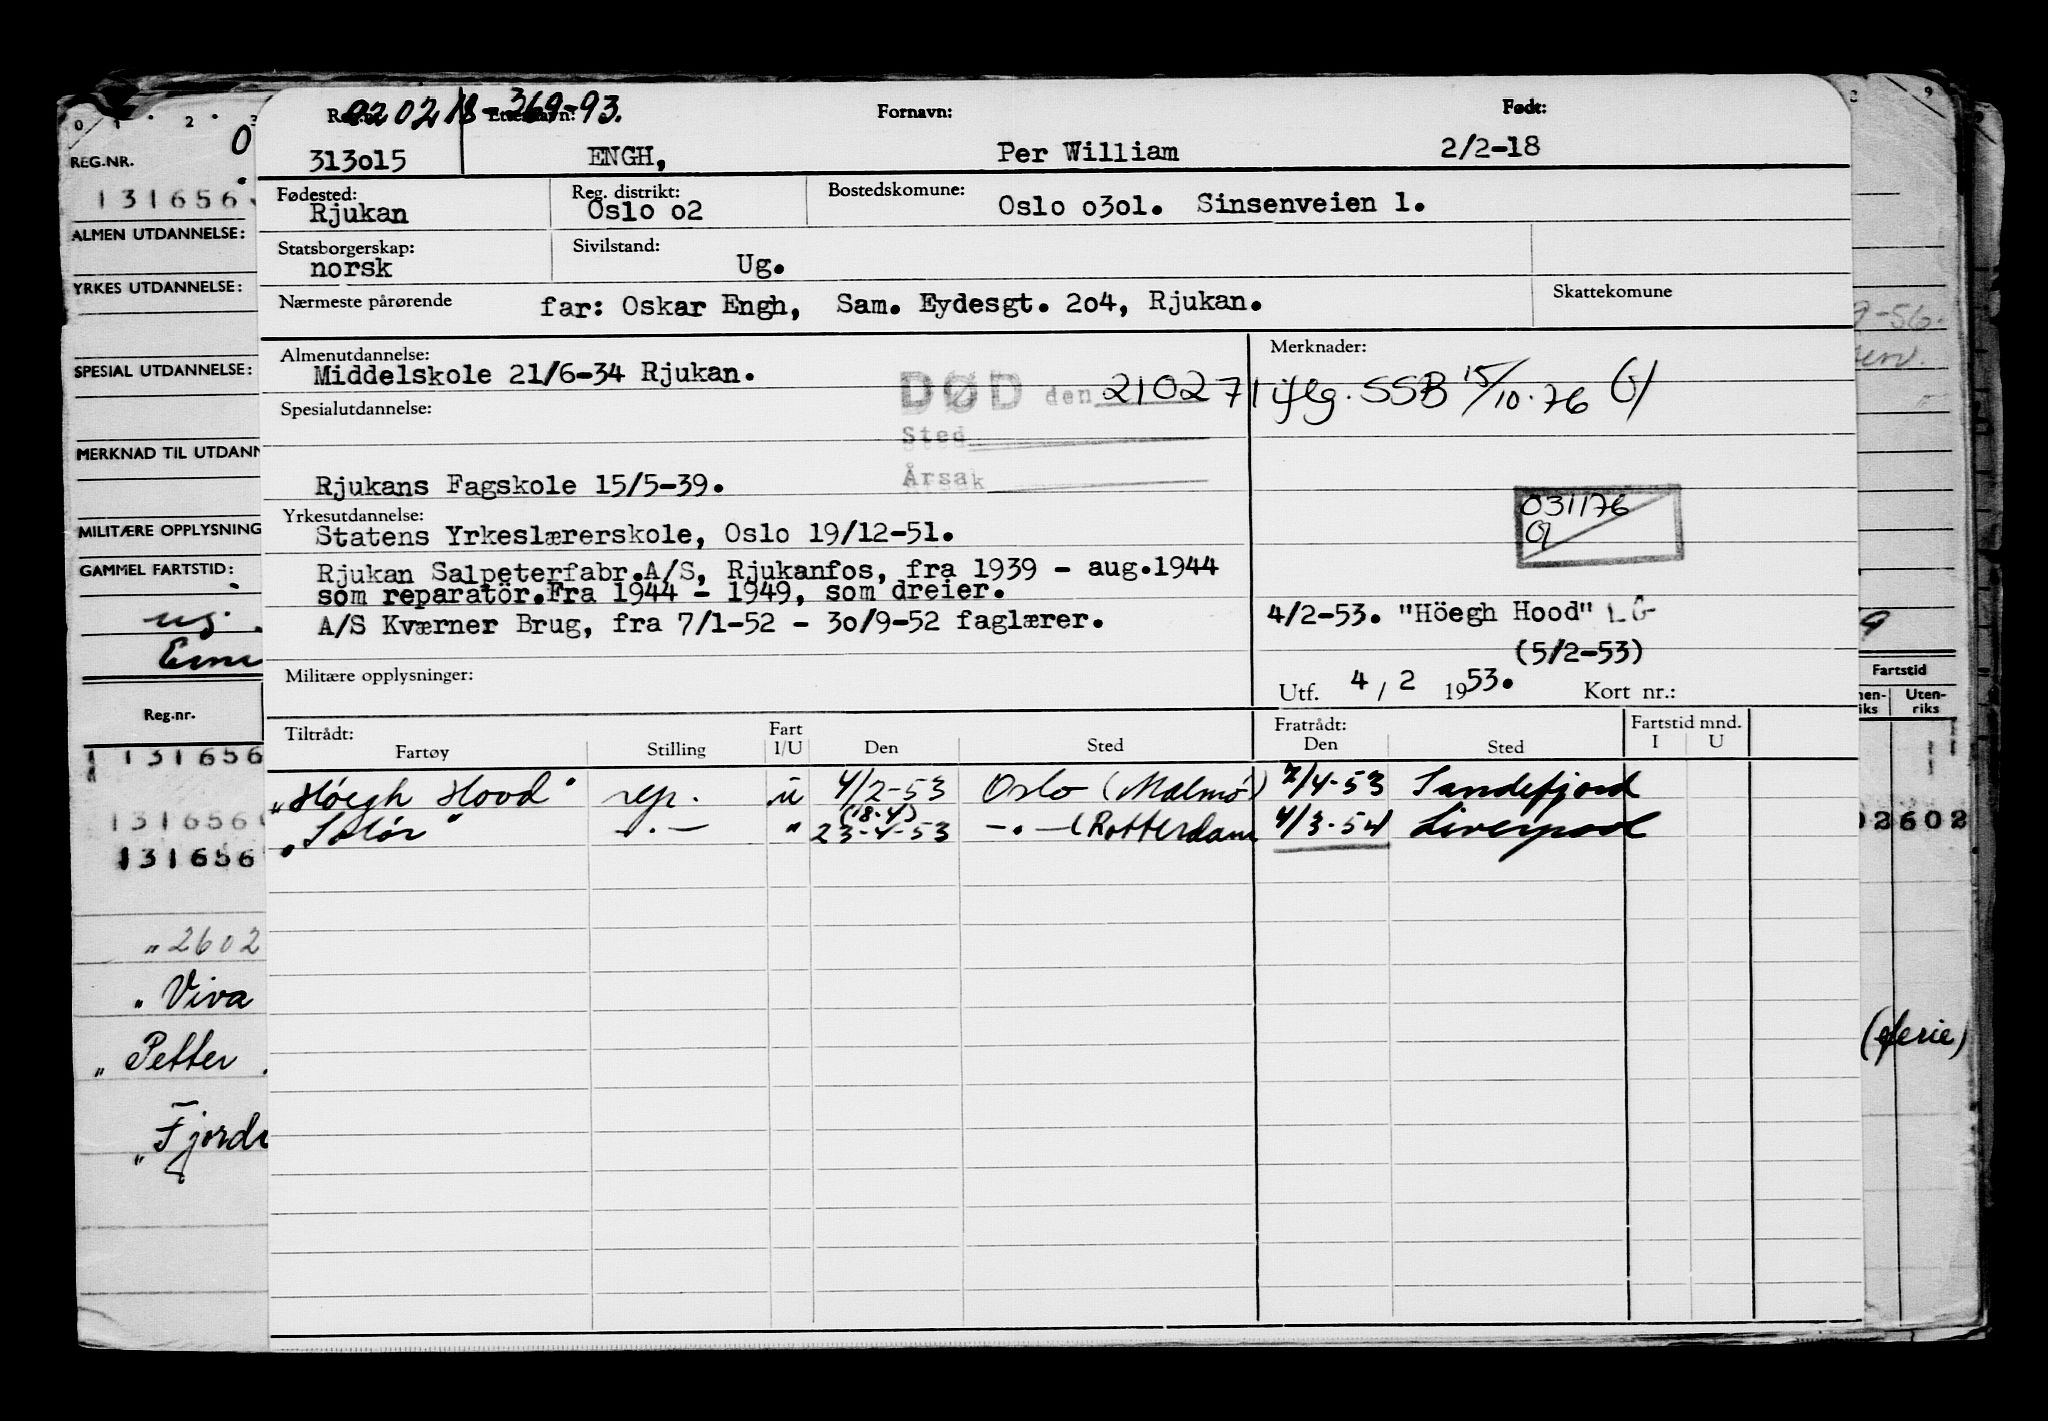 020218-36993.
Reg. Etternavn: Fornavn: Født:
313o15 ENGH, Per William 2/2-18
Fødested: Reg. distrikt: Bostedskomune:
Rjukan Oslo o2 Oslo o3o1. Sinsenveien 1.
Statsborgerskap: Sivilstand:
norsk Ug.
Nærmeste pårørende far: Oskar Engh, Sam. Eydesgt. 2o4, Rjukan. Skattekomune
Almenutdannelse: Merknader:
Middelskole 21/6-34 Rjukan.
DØD den 210271 iflg. SSB 15/10.76
Spesialutdannelse:
Sted
Årsak
Rjukans Fagskole 15/5-39.
031176
Yrkesutdannelse:
Statens Yrkeslærerskole, Oslo 19/12-51.
Rjukan Salpeterfabr.A/S, Rjukanfos, fra 1939 - aug.1944
som reparatör.Fra 1944 - 1949, som dreier.
A/S Kværner Brug, fra 7/1-52 - 3o/9-52 faglærer.
4/2-53. "Höegh Hood" LG
(5/2-53)
Militære opplysninger:
Utf. 4 / 2 1953. Kort nr.:
Tiltrådt: Fart Fratrådt: Fartstid mnd.
Fartøy Stilling I/U Den Sted Den Sted I U
"Höegh Hood" rep. u 4/2-53 Oslo (Malmö) 7/4-53 Sandefjord
(18.4)
"Solør" -.- " 23-4-53 -.- (Rotterdam 4/3-54 Liverpool
0 1 2 3
REG.NR. 0
131656
ALMEN UTDANNELSE:
YRKES UTDANNELSE:
SPESIAL UTDANNELSE:
MERKNAD TIL UTDANN
MILITÆRE OPPLYSNING
GAMMEL FARTSTID:
ug.
Reg.nr.
131656
131656
131656
"2602
"Viva
"Petter
"Fjord
9
-56.
Fartstid
Uten-
riks
02602
(ferie)